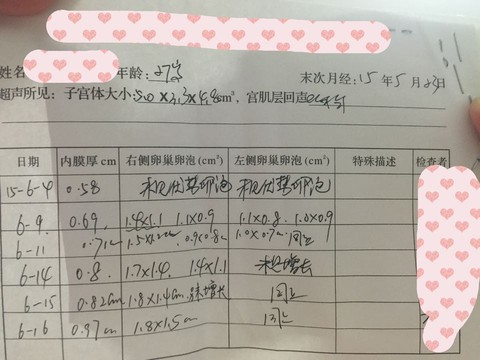 姓名 年龄: 27岁
末次月经: 15年5月23日
超声所见: 子宫体大小: 5.0×3.3×4.8cm³, 宫肌层回声
日期 内膜厚cm 右侧卵巢卵泡(cm²) 左侧卵巢卵泡(cm²) 特殊描述 检查者
15-6-4 0.58 未见优势卵泡 未见优势卵泡
6-9. 0.69, 1.4×1.1 1.1×0.9 1.1×0.8. 1.0×0.9
6-11 0.71cm 0.9×0.8 1.0×0.7cm 同上
6-14 0.8. 1.7×1.4. 1.4×1.1 未见增长
6-15 0.82cm 1.8×1.4cm 增长 同上
6-16 0.97cm 1.8×1.5cm 同上